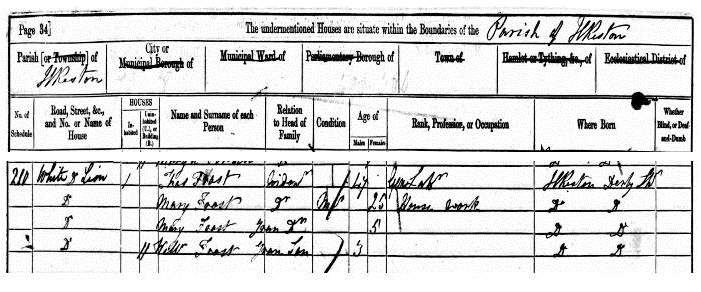 Page 34] The undermentioned Houses are situate within the Boundaries of the Parish of Ilkeston
Parish [or Township] of Ilkeston
City or Municipal Borough of
Municipal Ward of
Parliamentary Borough of
Town of
Hamlet or Tything, &c., of
Ecclesiastical District of
No. of Schedule
Road, Street, &c., and No. or Name of House
HOUSES
Inhabited
Uninhabited (U.), or Building (B.)
Name and Surname of each Person
Relation to Head of Family
Condition
Age of
Males Females
Rank, Profession, or Occupation
Where Born
Whether Blind, or Deaf-and-Dumb
210 White Lion 1 Thos Foast Widr 47 Ilkeston Derby
Do Mary Foast Dr 25 House work Do Do
Do Mary Foast Gran Dr 5 Do Do
Do Foast Gran Son 3 Do Do